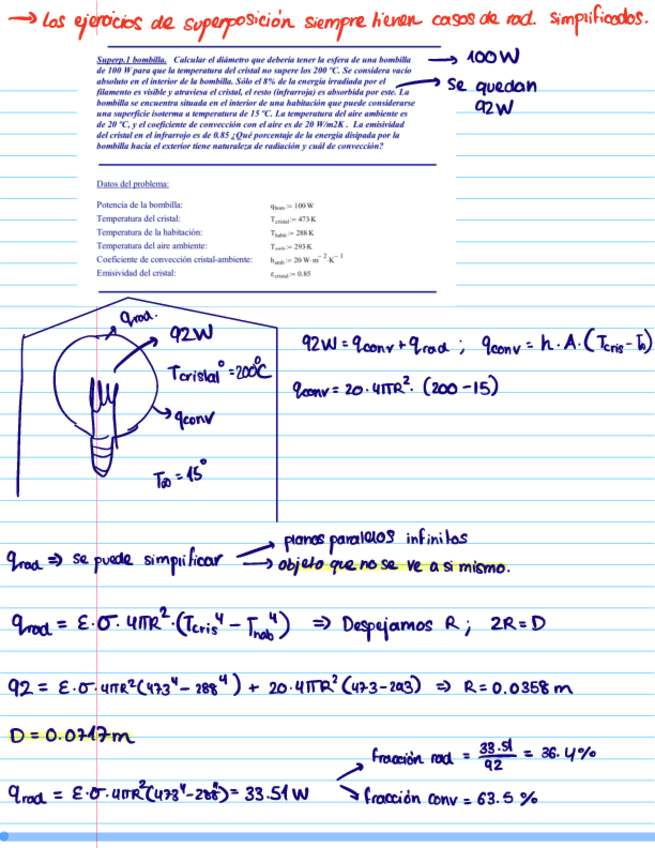 → Los ejercicios de superposición siempre tienen casos de rad. simplificados.
Superp.1 bombilla. Calcular el diámetro que debería tener la esfera de una bombilla
de 100 W para que la temperatura del cristal no supere los 200 ºC. Se considera vacío
absoluto en el interior de la bombilla. Sólo el 8% de la energía irradiada por el
filamento es visible y atraviesa el cristal, el resto (infrarroja) es absorbida por este. La
bombilla se encuentra situada en el interior de una habitación que puede considerarse
una superficie isoterma a temperatura de 15 ºC. La temperatura del aire ambiente es
de 20 ºC, y el coeficiente de convección con el aire es de 20 W/m2K . La emisividad
del cristal en el infrarrojo es de 0.85 ¿Qué porcentaje de la energía disipada por la
bombilla hacia el exterior tiene naturaleza de radiación y cuál de convección?
→ 100W
→ Se quedan
92W
Datos del problema:
Potencia de la bombilla: q := 100 W
Temperatura del cristal: T cristal := 473 K
Temperatura de la habitación: T := 288 K
Temperatura del aire ambiente: T := 293 K
Coeficiente de convección cristal-ambiente: h := 20·W·m⁻²·K⁻¹
Emisividad del cristal: ε cristal := 0.85
qrad.
92W
Tcristal = 200°C
qconv
T∞ = 15°
92W = qconv + qrad ; qconv = h·A·(Tcris - T∞)
qconv = 20·4πR²·(200-15)
qrad ⇒ se puede simplificar
→ planos paralelos infinitos
→ objeto que no se ve a si mismo.
qrad = ε·σ·4πR²·(Tcris⁴ - Thab⁴) ⇒ Despejamos R ; 2R = D
92 = ε·σ·4πR²(473⁴ - 288⁴) + 20·4πR²(473-293) ⇒ R = 0.0358 m
D = 0.0717m
qrad = ε·σ·4πR²(473⁴-288⁴) = 33.51 W
fracción rad = 33.51/92 = 36.4%
fracción conv = 63.5 %